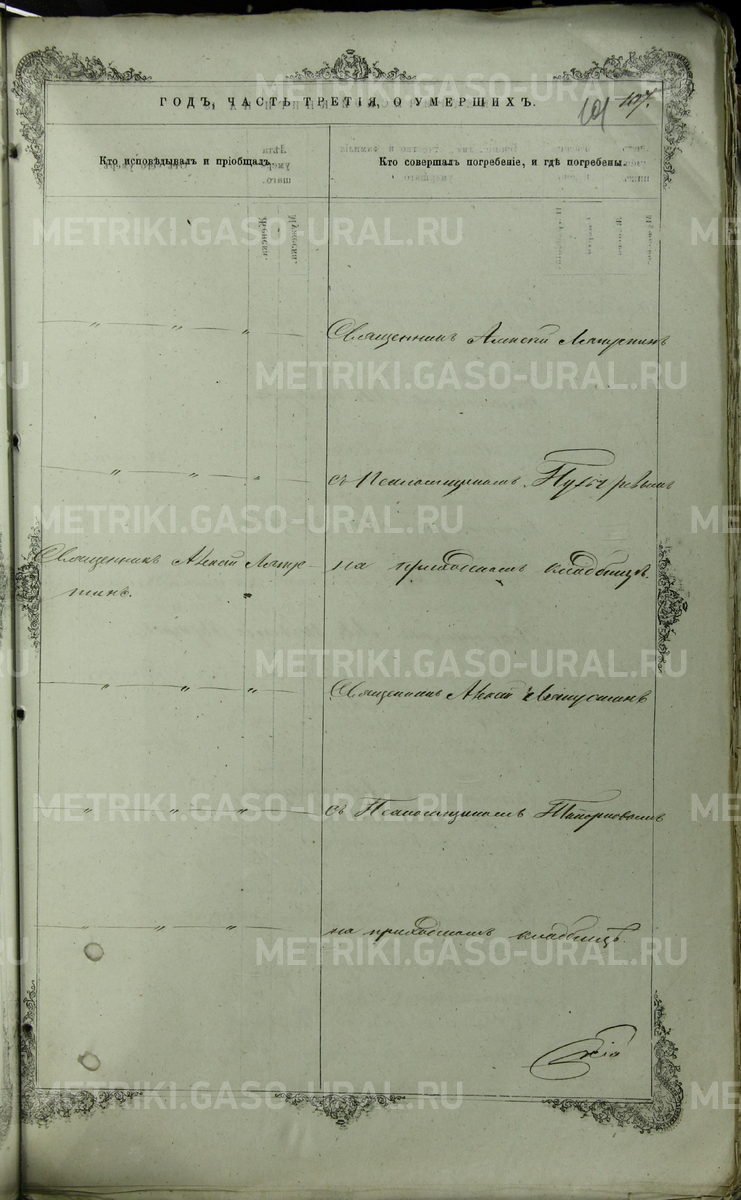 ГОДЪ, ЧАСТЬ ТРЕТІЯ, О УМЕРШИХЪ.
101 107.
Кто исповѣдывалъ и пріобщалъ.
Кто совершалъ погребеніе, и гдѣ погребены.
METRIKI.GASO-URAL.RU
— „ — „ — „ —
Священникъ Алексѣй
— „ — „ — „ —
съ Псаломщикомъ
Священникъ Алексѣй
на приходскомъ кладбищѣ.
— „ — „ — „ —
Священникъ Алексѣй
— „ — „ — „ —
съ Псаломщикомъ Топорковымъ
— „ — „ — „ —
на приходскомъ кладбищѣ.